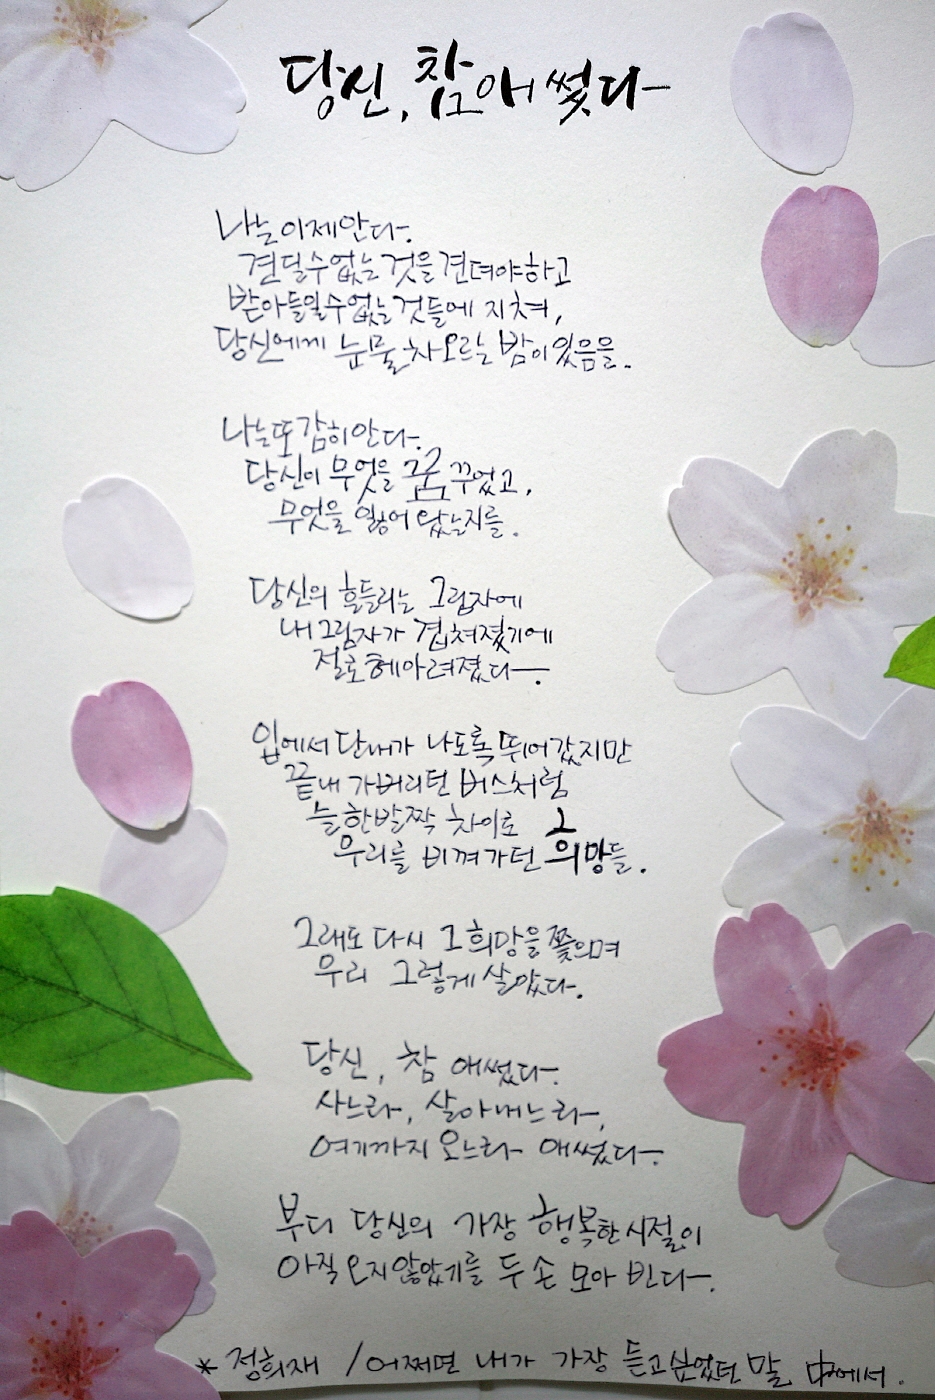 당신, 참 애썼다
나는 이제 안다.
견딜 수 없는 것을 견뎌야 하고
받아들일 수 없는 것들에 지쳐,
당신에게 눈물 차오르는 밤이 있음을.
나는 또 감히 안다.
당신이 무엇을 꿈꾸었고,
무엇을 잃어 왔는지를.
당신의 흔들리는 그림자에
내 그림자가 겹쳐졌기에
절로 헤아려졌다.
입에서 단내가 나도록 뛰어갔지만
끝내 가버리던 버스처럼
늘 한발짝 차이로
우리를 비껴가던 희망들.
그래도 다시 그 희망을 쫓으며
우리 그렇게 살았다.
당신, 참 애썼다.
사느라, 살아내느라,
여기까지 오느라 애썼다.
부디 당신의 가장 행복한 시절이
아직 오지 않았기를 두 손 모아 빈다.
* 정희재 / 어쩌면 내가 가장 듣고 싶었던 말 中에서.